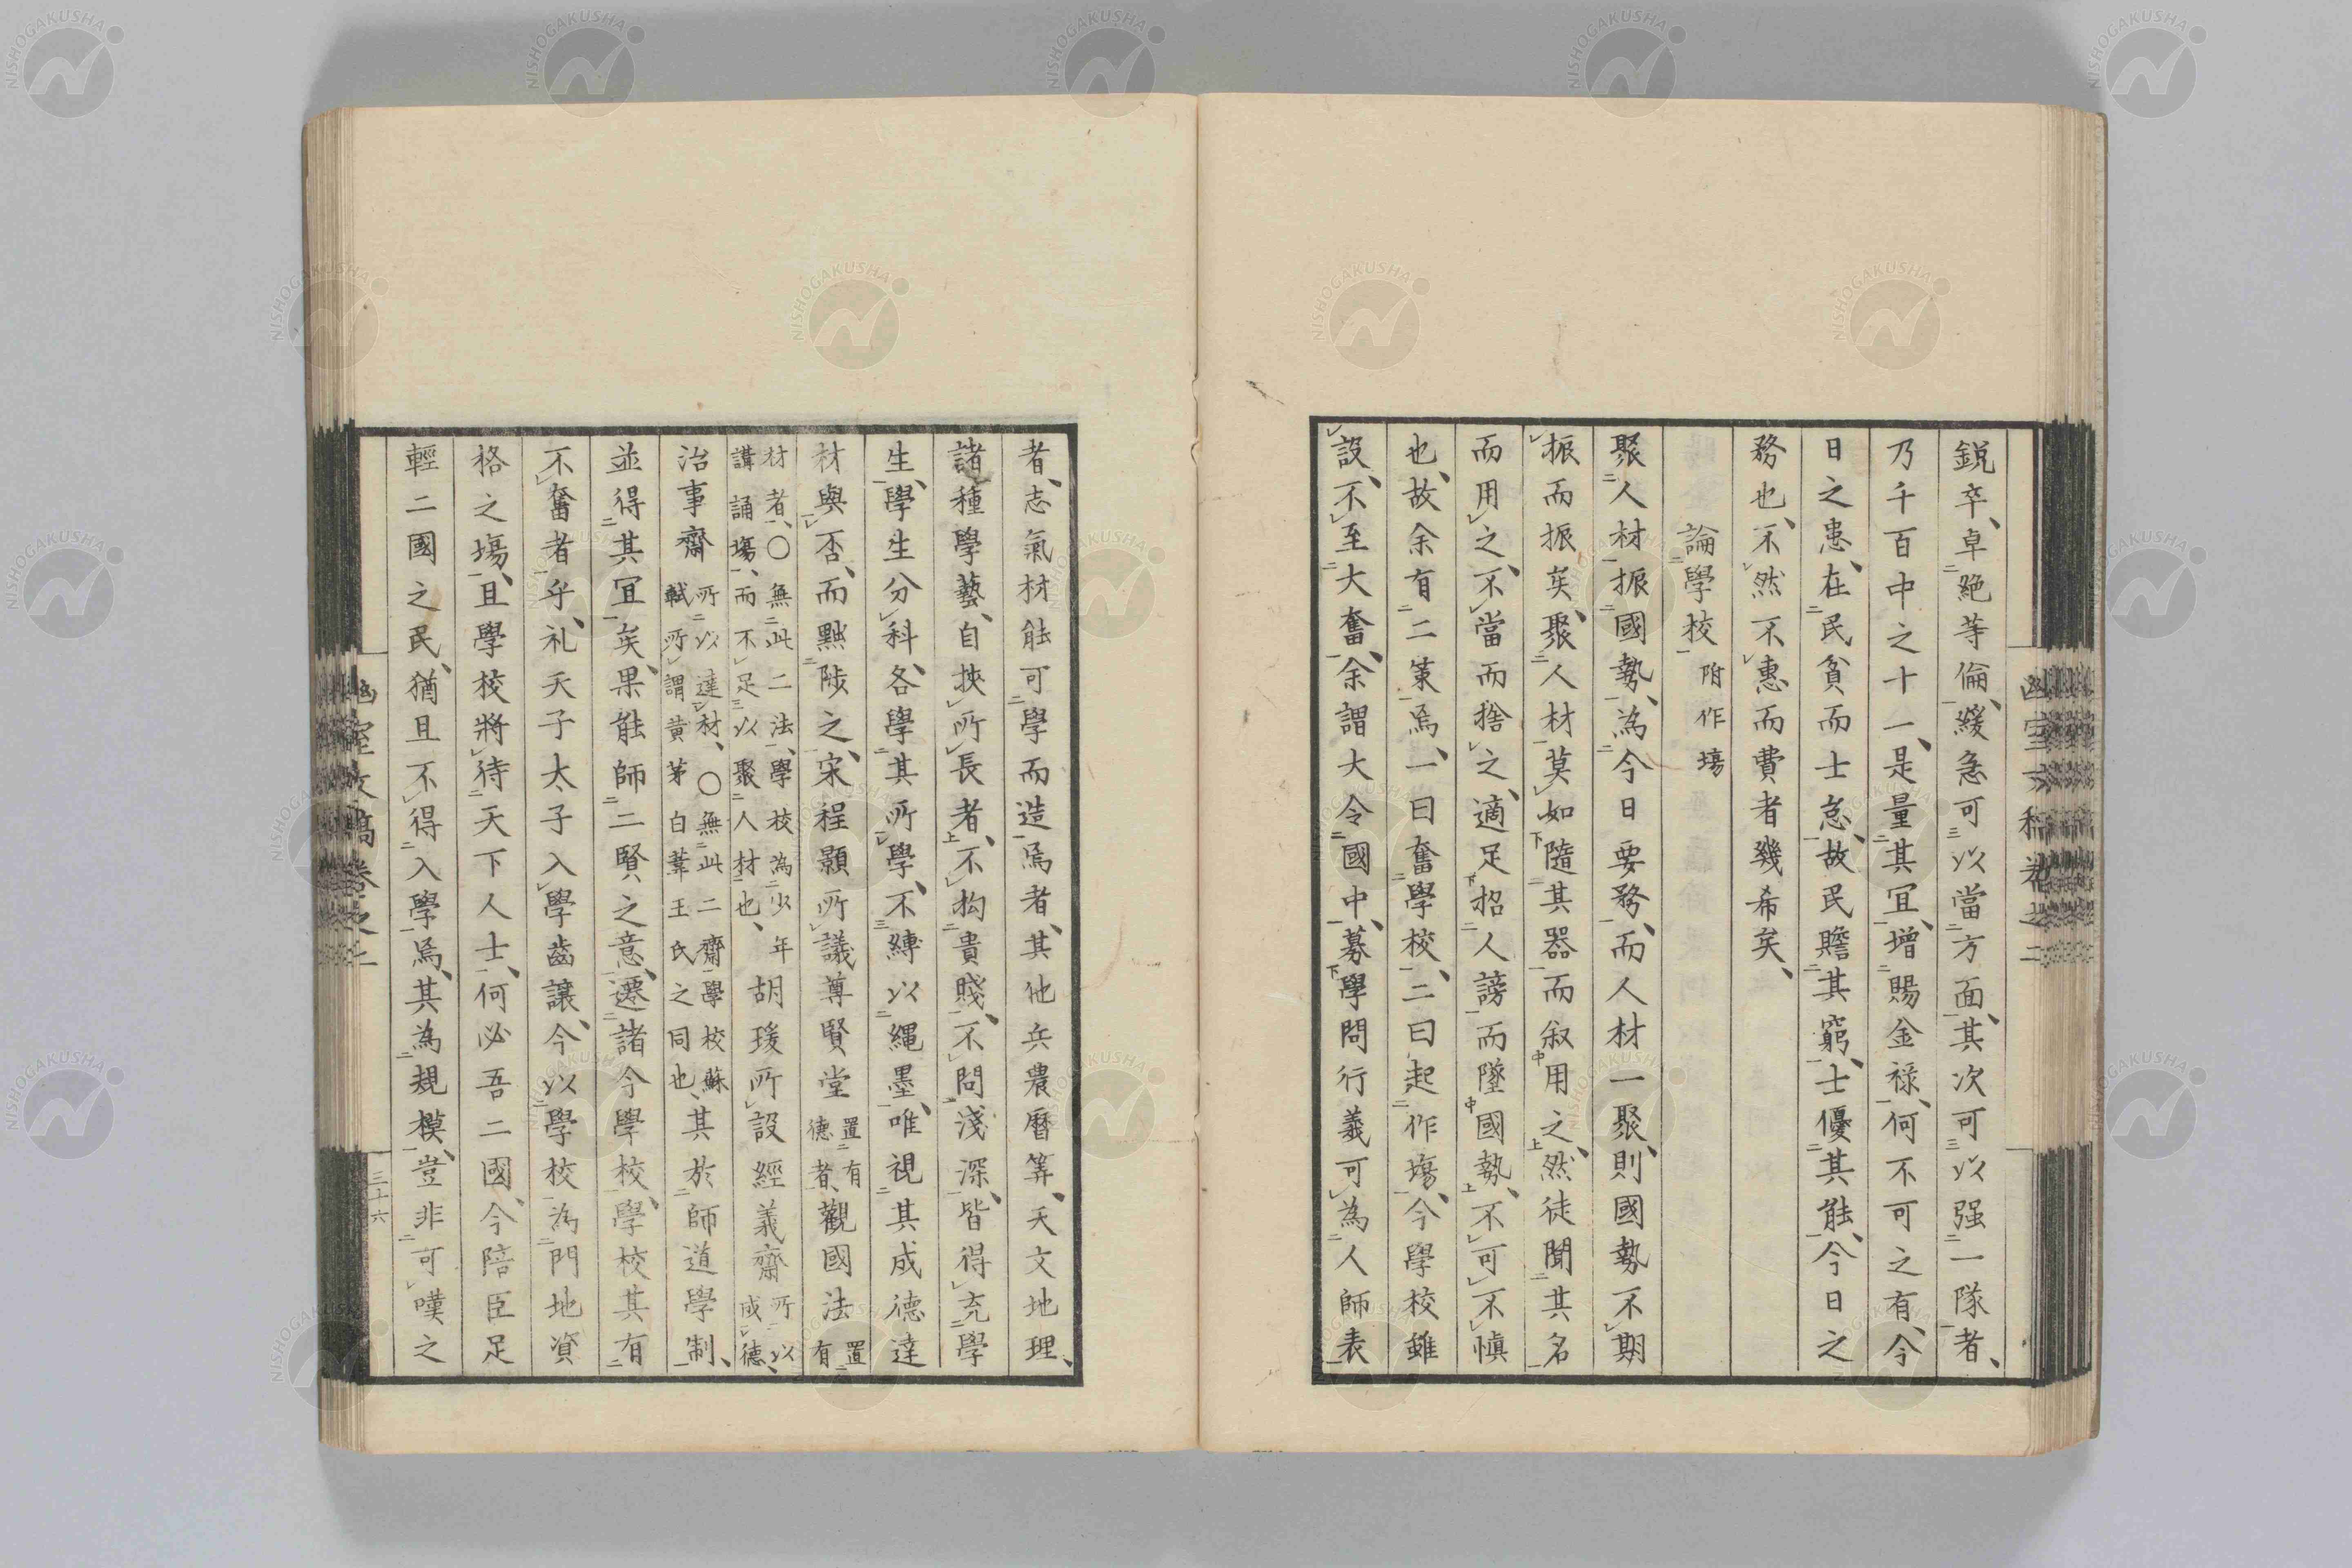 鋭卒、卓絶等倫、緩急可以當方面、其次可以强一隊者、
乃千百中之十一、是量其宜、增賜金禄、何不可之有、今
日之患、在民貧而士怠、故民贍其窮、士優其能、今日之
務也、不然不惠而費者幾希矣、
論學校 附作塲
聚人材振國勢、為今日要務、而人材一聚、則國勢不期
振而振矣、聚人材莫如隨其器而叙用之、然徒聞其名
而用之、不當而捨之、適足招人謗而墜國勢、不可不愼
也、故余有二策焉、一曰奮學校、二曰起作塲、今學校雖
設、不至大奮、余謂大令國中、募學問行義可為人師表
者、志氣材能可學而造焉者、其他兵農曆筭、天文地理、
諸種學藝、自挾所長者、不拘貴賤、不問淺深、皆得充學
生、學生分科、各學其所學、不縳以繩墨、唯視其成德達
材與否、而黜陟之、宋程顥所議尊賢堂 置有德者、觀國法 置有
材者、〇無此二法、學校為少年講誦塲、而不足以聚人材也、胡瑗所設經義齋 所以成德、
治事齋 所以達材、〇無此二齋學校蘇軾所謂黄茅白葦王氏之同也、其於師道學制、
並得其宜矣、果能師二賢之意、遷諸今學校、學校其有
不奮者乎、礼天子太子入學齒讓、今以學校為門地資
格之塲、且學校將待天下人士、何必吾二國、今陪臣足
輕二國之民、猶且不得入學焉、其為規模、豈非可嘆之
幽室文稿卷之二
三十六
幽室文稿卷之二
NISHOGAKUSHA